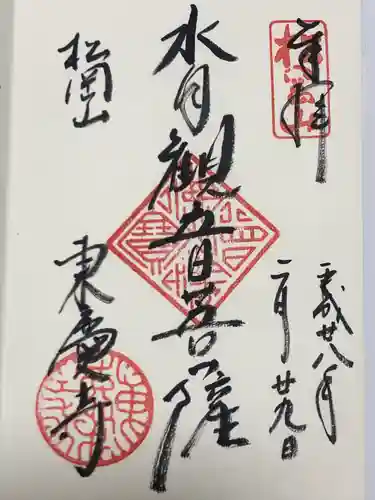 奉拝
平成廿八年
二月廿九日
水月觀音菩薩
松岡山
東慶寺